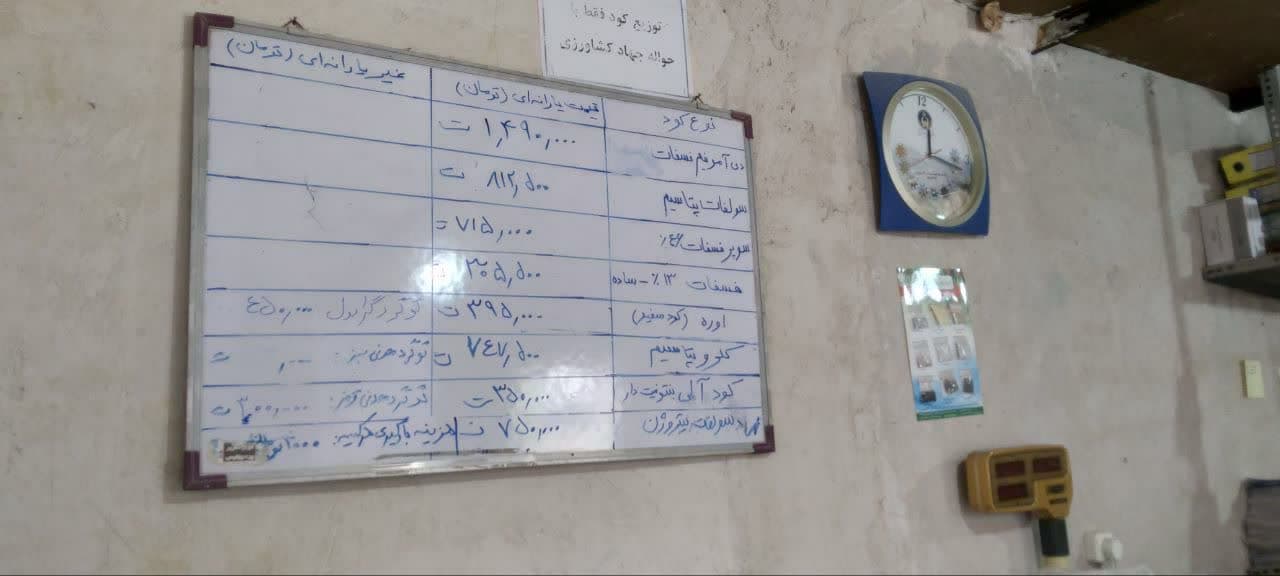 توزیع کود فقط با
حواله جهاد کشاورزی
نوع کود
قیمت یارانه‌ای (تومان)
غیر یارانه‌ای (تومان)
دی آمونیم فسفات
۱,۴۹۰,۰۰۰ ت
سولفات پتاسیم
۸۱۲,۵۰۰ ت
سوپر فسفات ۴۶٪
۷۱۵,۰۰۰ ت
فسفات ۱۳٪ - ساده
۳۰۵,۵۰۰ ت
اوره (کود سفید)
۳۹۵,۰۰۰ ت
گوگرد گرانول ۴۵۰,۰۰۰
کلرو پتاسیم
۷۴۷,۵۰۰ ت
گوگرد معدنی سبز: ت
کود آلی بنتونیت دار
۳۵۰,۰۰۰ ت
گوگرد معدنی قرمز: ۳۰۰,۰۰۰ ت
سولفات نیتروژن
۷۵۰,۰۰۰ ت
هزینه بارگیری هر کیسه:
12